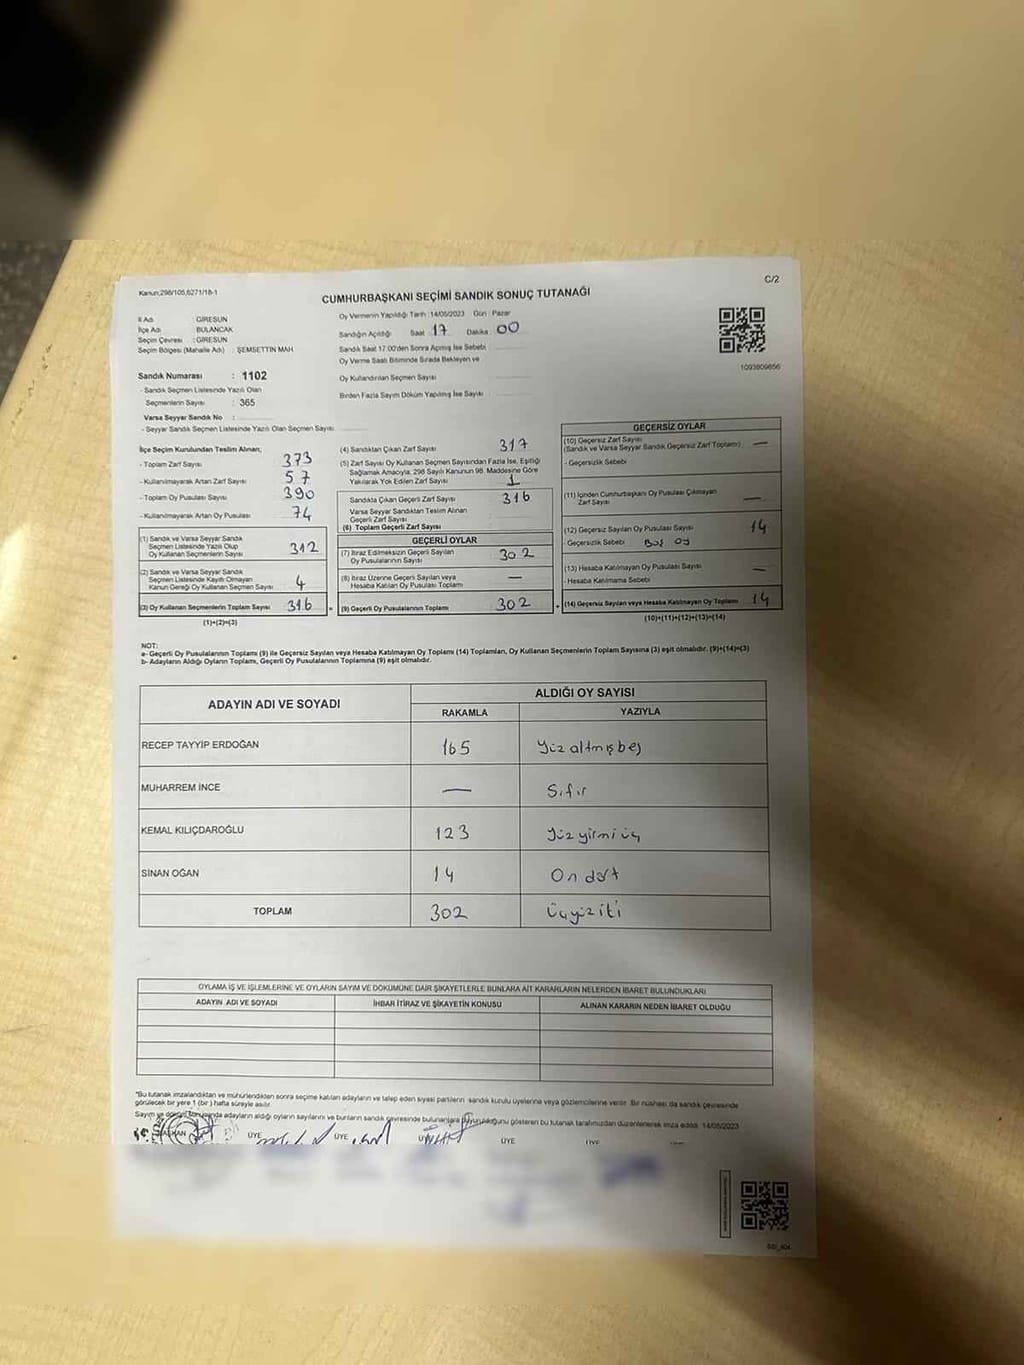 Kanun,298/105,6271/18-1
C/2
CUMHURBAŞKANI SEÇİMİ SANDIK SONUÇ TUTANAĞI
İl Adı : GİRESUN
İlçe Adı : BULANCAK
Seçim Çevresi : GİRESUN
Seçim Bölgesi (Mahalle Adı) : ŞEMSETTİN MAH
Sandık Numarası : 1102
- Sandık Seçmen Listesinde Yazılı Olan
Seçmenlerin Sayısı : 365
Varsa Seyyar Sandık No :
- Seyyar Sandık Seçmen Listesinde Yazılı Olan Seçmen Sayısı :
Oy Vermenin Yapıldığı Tarih :14/05/2023 Gün : Pazar
Sandığın Açıldığı Saat 17 Dakika 00
Sandık Saat 17:00'den Sonra Açılmış İse Sebebi
Oy Verme Saati Bitiminde Sırada Bekleyen ve
Oy Kullandırılan Seçmen Sayısı :
Birden Fazla Sayım Döküm Yapılmış İse Sayısı :
1093809856
İlçe Seçim Kurulundan Teslim Alınan;
- Toplam Zarf Sayısı : 373
- Kullanılmayarak Artan Zarf Sayısı : 57
- Toplam Oy Pusulası Sayısı : 390
- Kullanılmayarak Artan Oy Pusulası : 74
(1) Sandık ve Varsa Seyyar Sandık
Seçmen Listesinde Yazılı Olup
Oy Kullanan Seçmenlerin Sayısı : 312
(2) Sandık ve Varsa Seyyar Sandık
Seçmen Listesinde Kayıtlı Olmayan
Kanun Gereği Oy Kullanan Seçmen Sayısı : 4
(3) Oy Kullanan Seçmenlerin Toplam Sayısı : 316
(1)+(2)=(3)
(4) Sandıktan Çıkan Zarf Sayısı : 317
(5) Zarf Sayısı Oy Kullanan Seçmen Sayısından Fazla İse, Eşitliği
Sağlamak Amacıyla, 298 Sayılı Kanunun 98. Maddesine Göre
Yakılarak Yok Edilen Zarf Sayısı : 1
Sandıkta Çıkan Geçerli Zarf Sayısı : 316
Varsa Seyyar Sandıktan Teslim Alınan
Geçerli Zarf Sayısı :
(6) Toplam Geçerli Zarf Sayısı :
GEÇERLİ OYLAR
(7) İtiraz Edilmeksizin Geçerli Sayılan
Oy Pusulalarının Sayısı : 302
(8) İtiraz Üzerine Geçerli Sayılan veya
Hesaba Katılan Oy Pusulası Toplamı : —
= (9) Geçerli Oy Pusulalarının Toplamı : 302
GEÇERSİZ OYLAR
(10) Geçersiz Zarf Sayısı
(Sandık ve Varsa Seyyar Sandık Geçersiz Zarf Toplamı) : —
- Geçersizlik Sebebi
(11) İçinden Cumhurbaşkanı Oy Pusulası Çıkmayan
Zarf Sayısı : —
(12) Geçersiz Sayılan Oy Pusulası Sayısı : 14
- Geçersizlik Sebebi Boş oy
(13) Hesaba Katılmayan Oy Pusulası Sayısı : —
- Hesaba Katılmama Sebebi
+ (14) Geçersiz Sayılan veya Hesaba Katılmayan Oy Toplamı : 14
(10)+(11)+(12)+(13)=(14)
NOT:
a- Geçerli Oy Pusulalarının Toplamı (9) ile Geçersiz Sayılan veya Hesaba Katılmayan Oy Toplamı (14) Toplamları, Oy Kullanan Seçmenlerin Toplam Sayısına (3) eşit olmalıdır. (9)+(14)=(3)
b- Adayların Aldığı Oyların Toplamı, Geçerli Oy Pusulalarının Toplamına (9) eşit olmalıdır.
ADAYIN ADI VE SOYADI
ALDIĞI OY SAYISI
RAKAMLA YAZIYLA
RECEP TAYYİP ERDOĞAN 165 Yüz altmış beş
MUHARREM İNCE — Sıfır
KEMAL KILIÇDAROĞLU 123 Yüz yirmi üç
SİNAN OĞAN 14 On dört
TOPLAM 302 Üçyüz iki
OYLAMA İŞ VE İŞLEMLERİNE VE OYLARIN SAYIM VE DÖKÜMÜNE DAİR ŞİKAYETLERLE BUNLARA AİT KARARLARIN NELERDEN İBARET BULUNDUKLARI
ADAYIN ADI VE SOYADI İHBAR İTİRAZ VE ŞİKAYETİN KONUSU ALINAN KARARIN NEDEN İBARET OLDUĞU
*Bu tutanak imzalandıktan ve mühürlendikten sonra seçime katılan adayların ve talep eden siyasi partilerin sandık kurulu üyelerine veya gözlemcilerine verilir. Bir nüshası da sandık çevresinde
görülecek bir yere 1 (bir) hafta süreyle asılır.
Sayım ve döküm sonunda adayların aldığı oyların sayılarını ve bunların sandık çevresinde bulunanlara duyurulduğunu gösteren bu tutanak tarafımızdan düzenlenerek imza edildi. 14/05/2023
BAŞKAN ÜYE ÜYE ÜYE ÜYE ÜYE